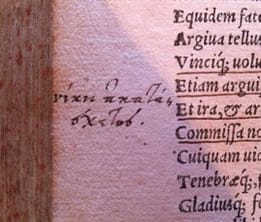 Equidem fate
Argiua tellus
Vinciq; uolu
Etiam arguij
Et ira, & ar
Commissa no
Cuiquam uid
Tenebræq;
Gladiusq; fe